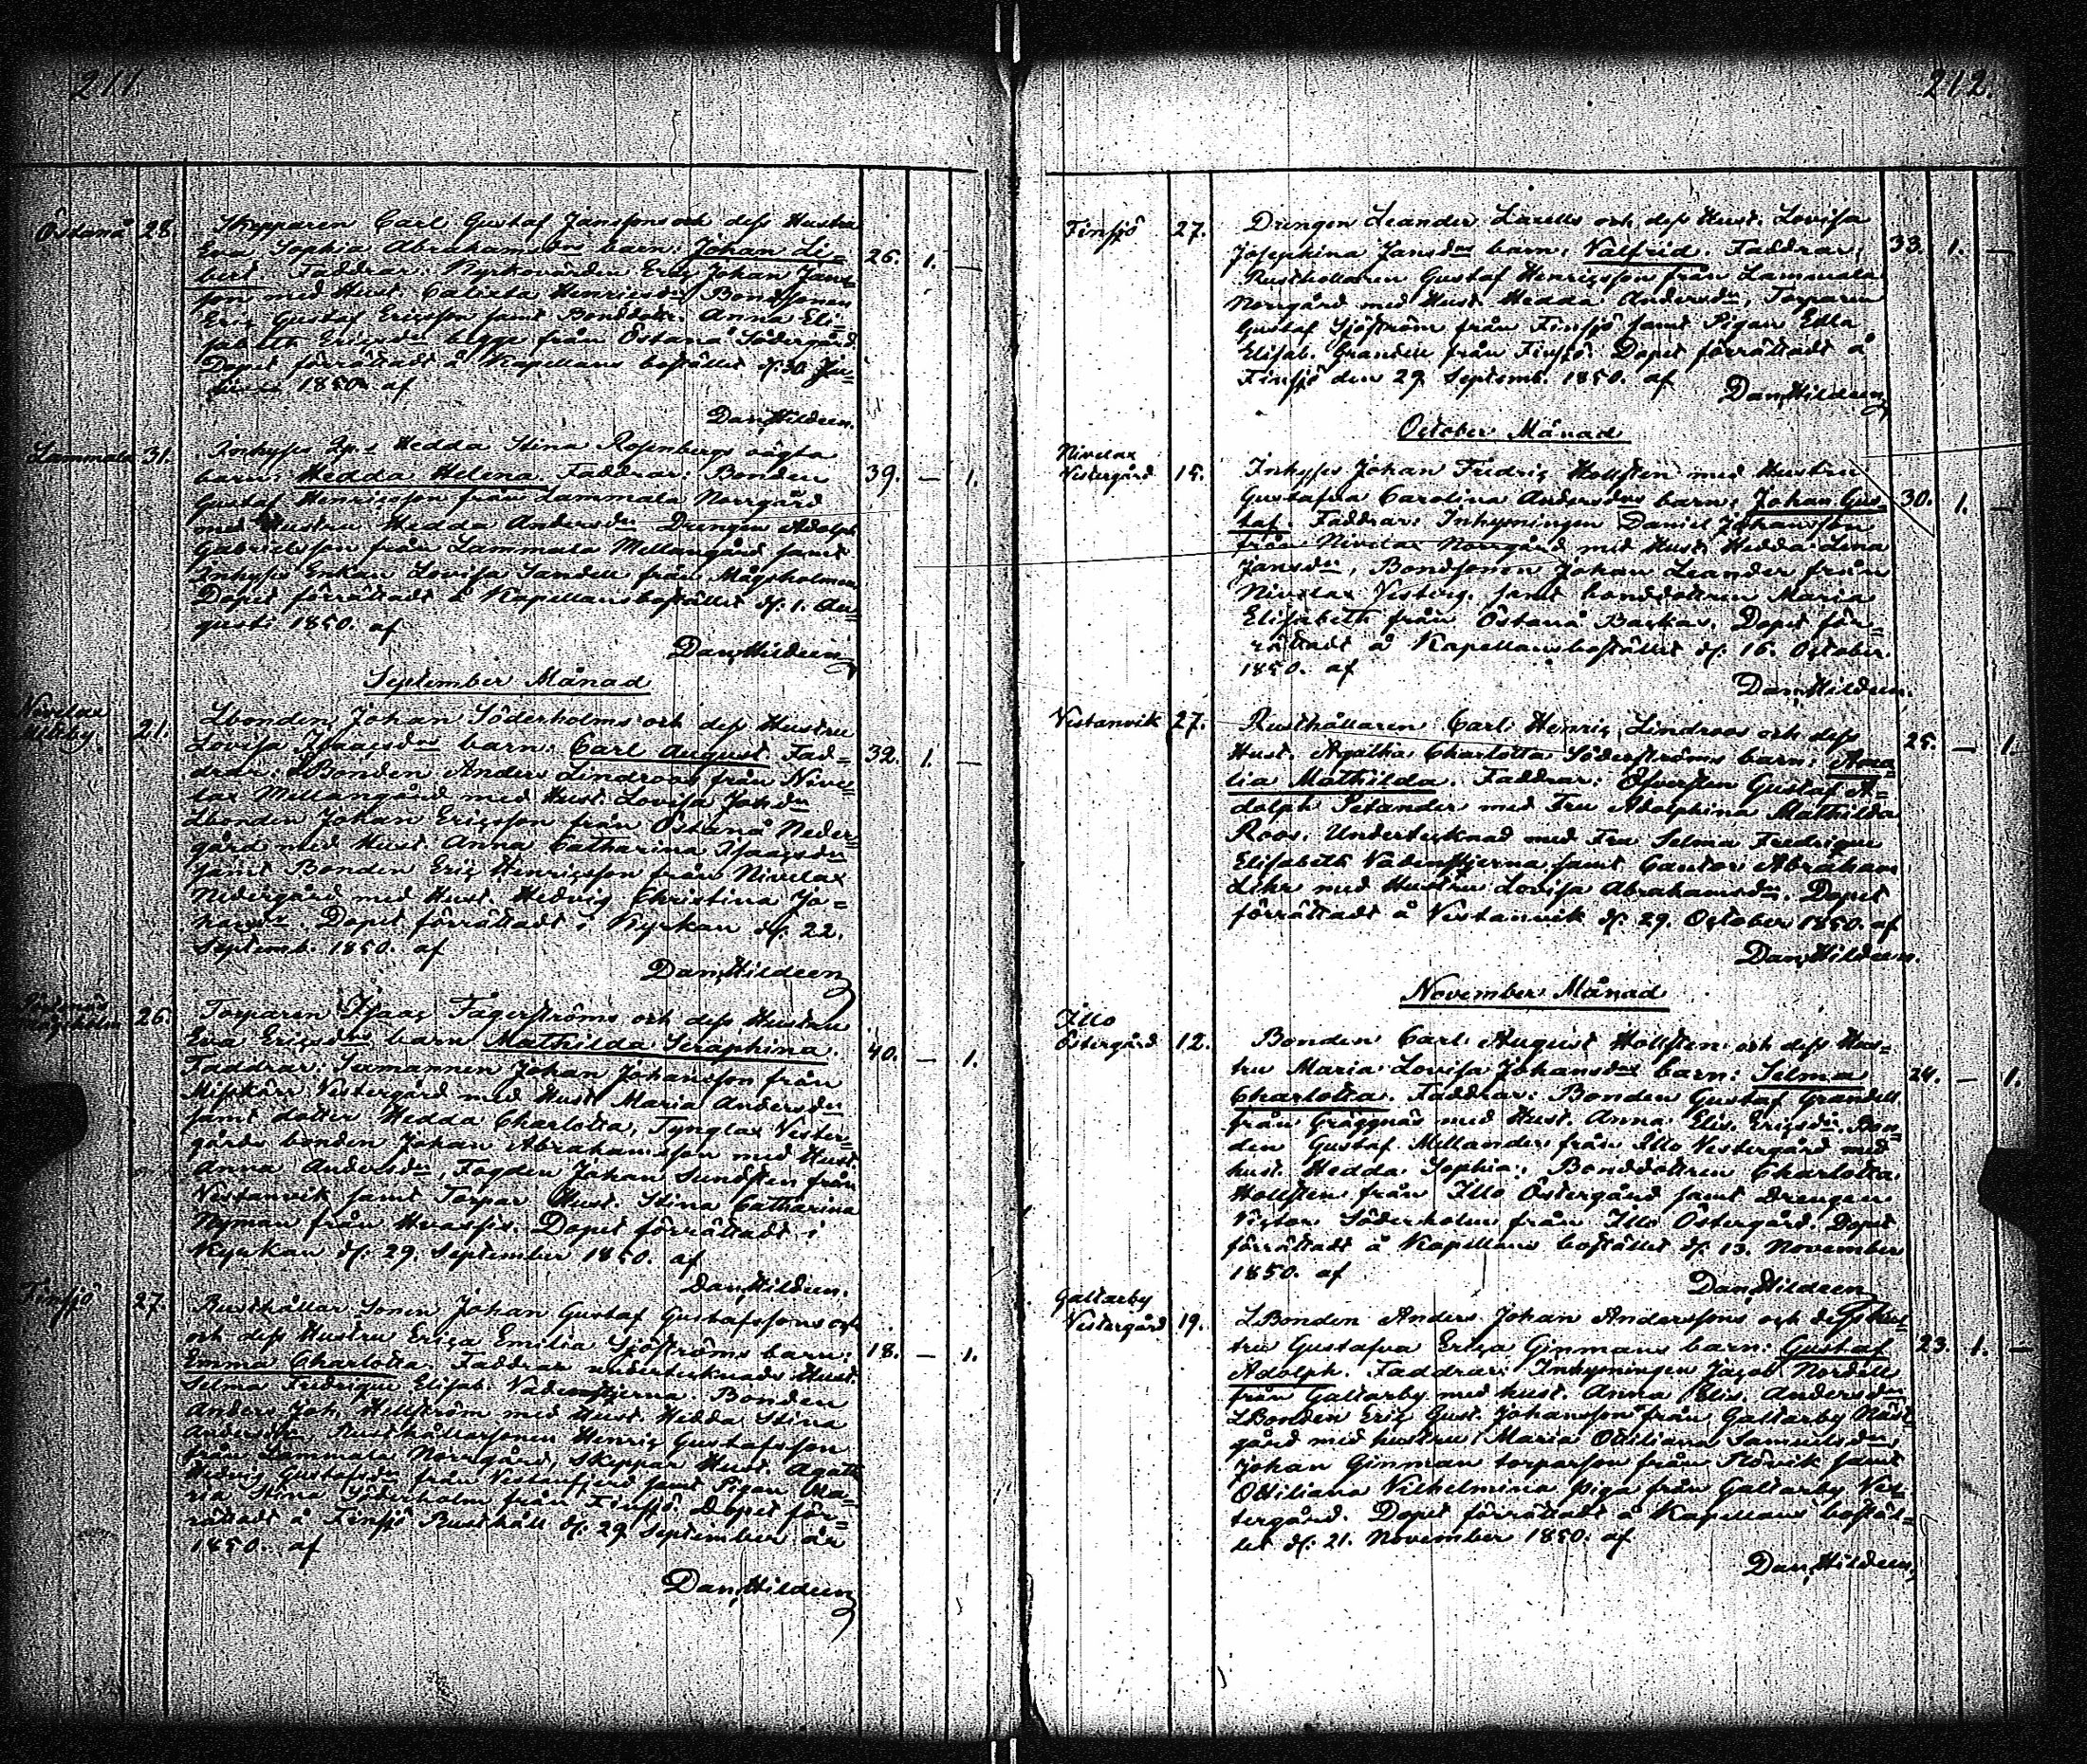 211
Östanå 28. Skepparen Carl Gustaf Janssons och dess Hustru
Eva Sophia Abrahamsdrs barn: Johan Li= 26. 1. —
bert. Faddrar: Kyrkovärden Eric Johan Jans=
son med Hust. Calixta Henricsdr Bondsonen
Eric Gustaf Ericsson samt Bonddottr. Anna Eli=
sabeth Ericsdr begge från Östanå Södergård
Dopet förrättadt å Kapellans bostället d. 30
1850 af
Dan. Hildeen.
Lammala 31. Inhyses Hedda Stina Rosenbergs oägta
barn: Hedda Helena. Faddrar: Bonden 39. — 1.
Gustaf Henricsson från Lammala Norrgård
med Hustru Hedda Andersdr Drengen Adolph
Gabrielsson från Lammala Mellangård samt
Inhyses Enkan Lovisa Sandell från Mågsholmen
Dopet förrättadt å Kapellansbostället d. 1. Au=
gusti 1850. af
Dan. Hildeen
September Månad
Nivelax
21. Lbonden Johan Söderholms och dess Hustru
Lovisa Isaacsdrs barn: Carl August. Fad= 32. 1. —
drar: LBonden Anders Lindroos från Nive=
lax Mellangård med Hust. Lovisa Johsdr
Lbonden Johan Ericsson från Östanå Neder=
gård med Hust. Anna Catharina Isaacsdr
samt Bonden Eric Henricsson från Nivelax
Nedergård med Hust. Hedvig Christina Jo=
hansdr. Dopet förrättadt i Kyrkan d. 22.
Septemb. 1850. af
Dan. Hildeen
26. Torparen Isaac Fagerströms och dess Hustru
Eva Ericsdrs barn Mathilda Seraphina. 40. — 1.
Faddrar: Sexmannen Johan Johansson från
Misskärr Vestergård med Hust. Maria Andersdr
samt dotter Hedda Charlotta, Tynglax Vester=
gårds bonden Johan Abrahamsson med Hust.
Anna Andersdr, Fogden Johan Sundsten från
Vestanvik samt Torpar Hust. Stina Catharina
Nyman från Dopet förrättadt i
Kyrkan d. 29. September 1850. af
Dan. Hildeen.
Finsjö 27. Rusthållar Sonen Johan Gustaf Gustafssons och
och dess Hustru Erica Emilia Sjöströms barn: 18. — 1.
Emma Charlotta. Faddrar undertecknads Hust.
Selma Fredrique Elisab. Nadenstjerna. Bonden
Anders Joh. Hellström med Hust. Hedda Stina
Andersdr, Rusthållarsonen Henric Gustafsson
från Lammala Norrgård, Skeppar Hust. Agatha
Hedvig Gustafsdr från Vestanfjerd samt Pigan Ma=
ria Stina Söderholm från Finsjö. Dopet för=
rättadt å Finsjö Rusthåll d. 29 September år
1850. af
Dan. Hildeen
212.
Finsjö 27. Drengen Leander Laxells och dess Hust. Lovisa
Josephina Jansdrs barn: Valfrid. Faddrar: 33. 1. —
Rusthollaren Gustaf Henricsson från Lammala
Norrgård med Hust. Hedda Andersdr, Torparen
Gustaf Sjöström från Finsjö samt Pigan Edla
Elisab. Grandell från Finsjö. Dopet förrättadt å
Finsjö den 29 Septemb. 1850. af
Dan. Hildeen
October Månad
Nivelax
Vestergård 15. Inhyses Johan Fredric Hollsten med Hustru
Gustafva Carolina Andersdrs barn: Johan Gus= 30. 1. —
taf. Faddrar: Inhysningen Daniel Johansson
från Nivelax Norrgård med Hust. Hedda Lena
Jansdr, Bondsonen Johan Leander från
Nivelax Vesterg. samt bonddottren Maria
Elisabeth från Östanå Backas. Dopet för=
rättadt å Kapellansbostället d. 16. October
1850. af
Dan. Hildeen.
Vestanvik 27. Rusthållaren Carl Henric Lindroos och dess
Hust. Agatha Charlotta Söderströms barn: Ama= 25. — 1.
lia Mathilda. Faddrar: Öfversten Gustaf A=
dolph Petander med Fru Adolphina Mathilda
Roos, Undertecknad med Fru Selma Fredrique
Elisabeth Nadenstjerna samt Cantor Abraham
Lihr med Hustru Lovisa Abrahamsdr. Dopet
förrättadt å Vestanvik d. 29. October 1850. af
Dan. Hildeen.
November Månad
Illo
Östergård 12. Bonden Carl August Hollsten och dess Hus=
tru Maria Lovisa Johansdrs barn: Selma 24. — 1.
Charlotta. Faddrar: Bonden Gustaf Grandell
från Gräggnäs med Hust. Anna Elis. Ericsdr. Bon=
den Gustaf Mellander från Illo Vestergård med
hust. Hedda Sophia, Bonddottren Charlotta
Hollsten från Illo Östergård samt drengen
Victor Söderholm från Illo Östergård. Dopet
förrättadt å Kapellans bostället d. 13. November
1850. af
Dan. Hildeen
Galtarby
Vestergård 19. LBonden Anders Johan Anderssons och dess Hus=
tru Gustafva Erica Ginmans barn: Gustaf 23. 1. —
Adolph. Faddrar: Inhysningen Jacob Nordell
från Galtarby med hust. Anna Elis. Andersdr
LBonden Eric Gust. Johansson från Galtarby
gård med hustru Maria Ottiliana Samuelsdr,
Johan Ginman torparson från Flövik samt
Ottiliana Vilhelmina piga från Galtarby Ves=
tergård. Dopet förrättadt å Kapellans bostäl=
let d. 21. November 1850. af
Dan. Hildeen.